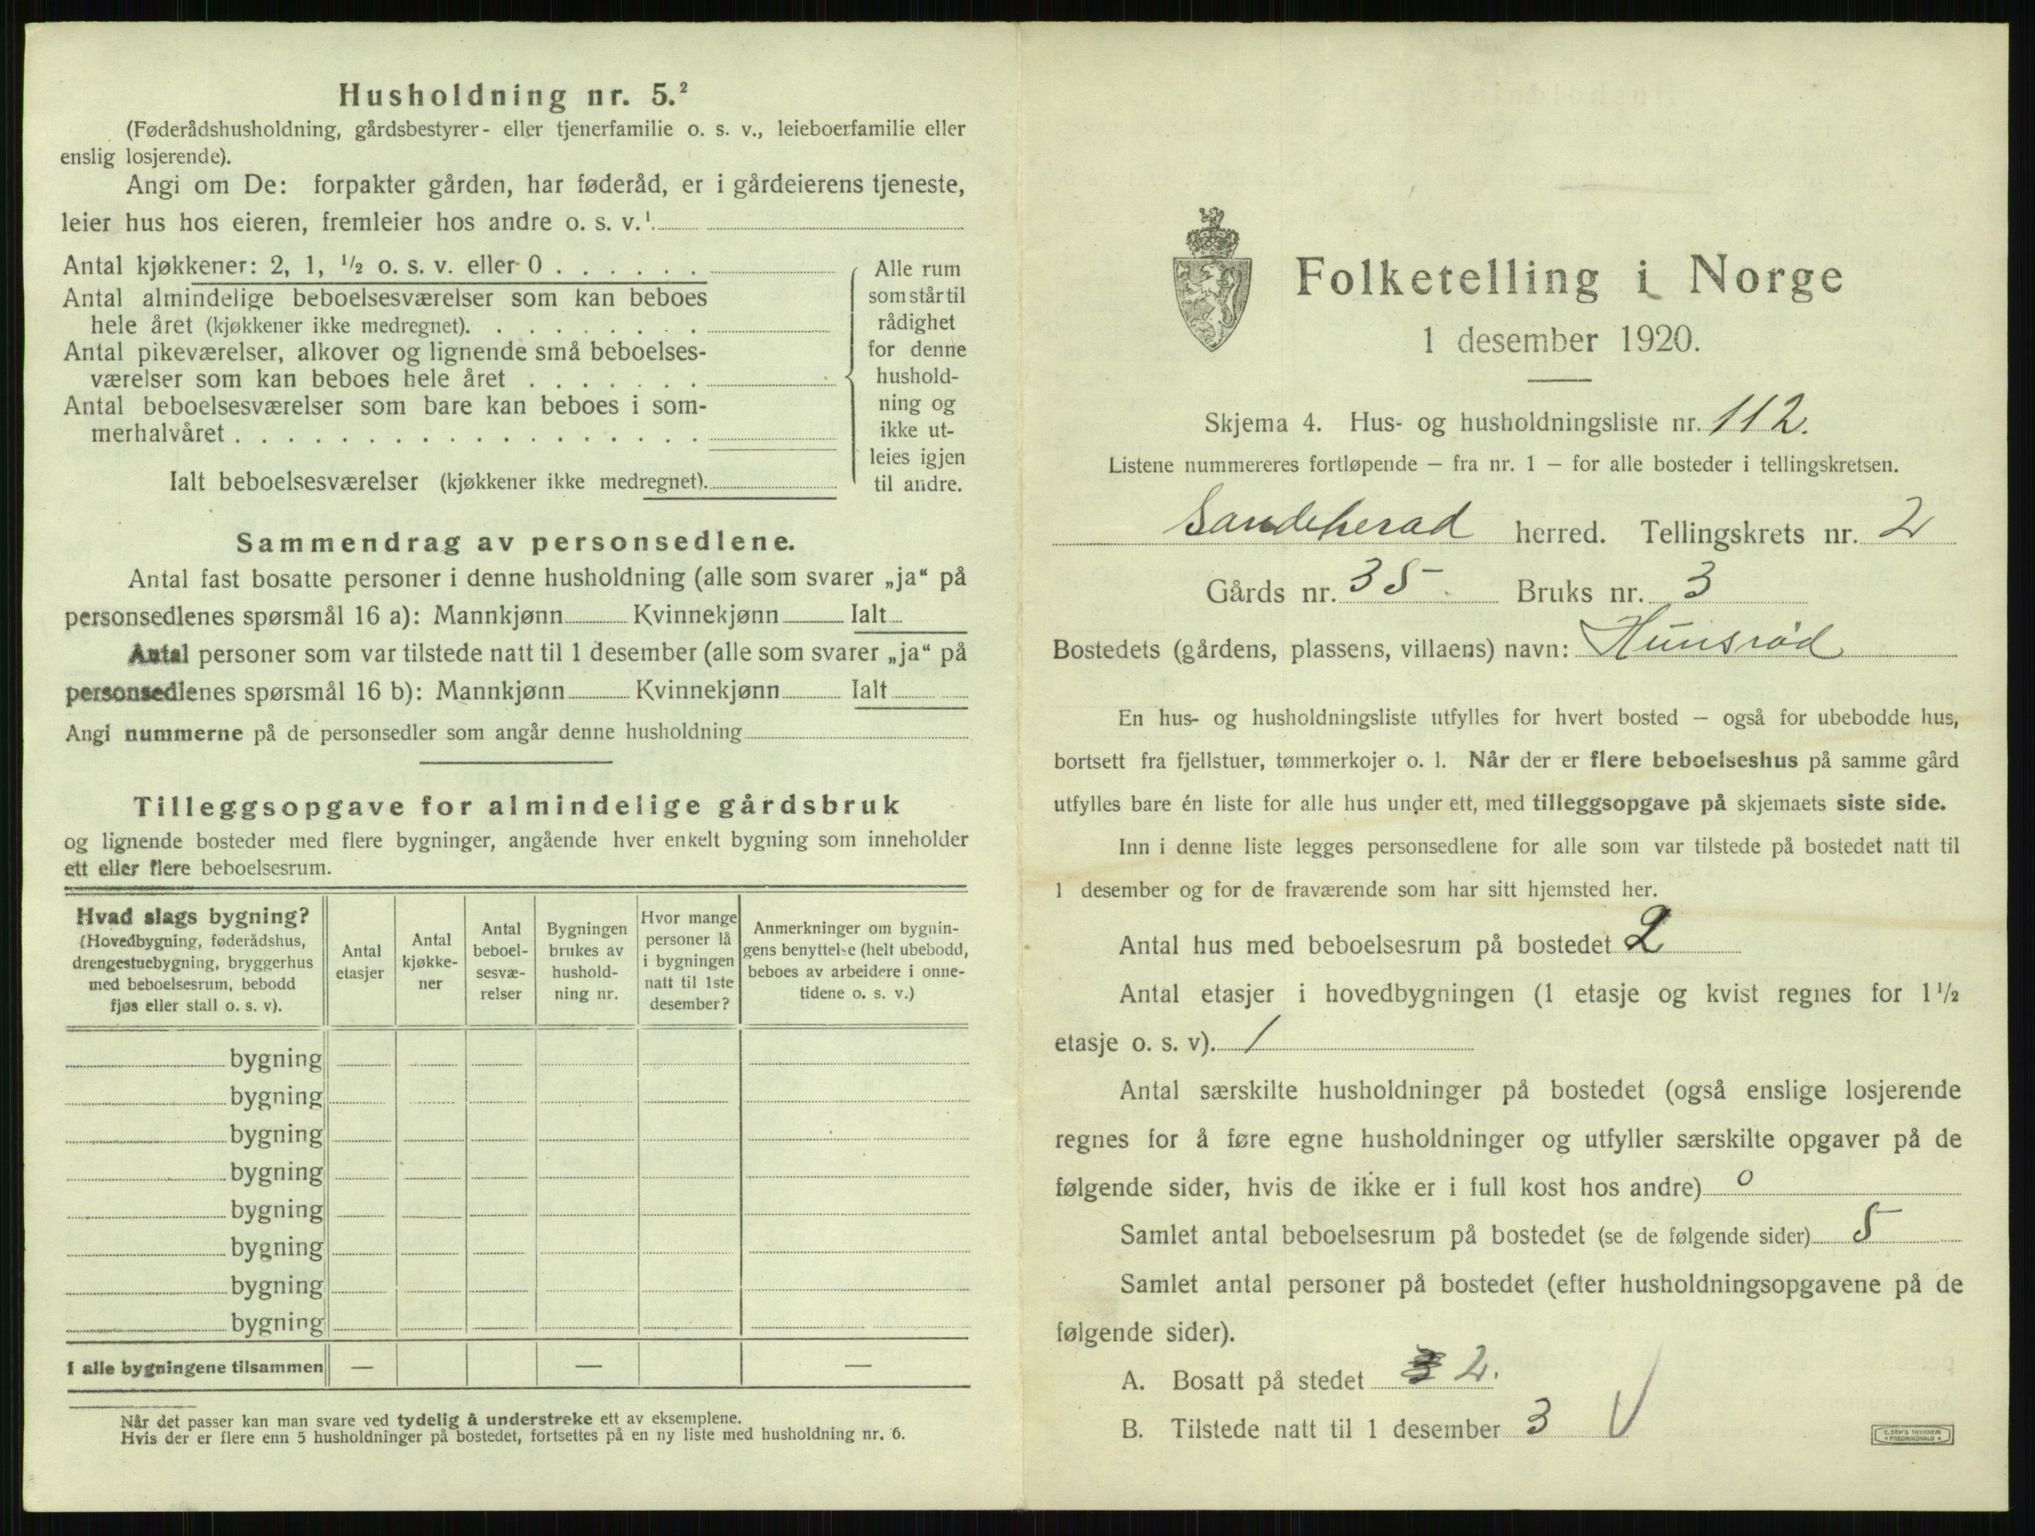 Husholdning nr. 5.²
(Føderådshusholdning, gårdsbestyrer- eller tjenerfamilie o. s. v., leieboerfamilie eller
enslig losjerende).
Angi om De: forpakter gården, har føderåd, er i gårdeierens tjeneste,
leier hus hos eieren, fremleier hos andre o. s. v.¹
Antal kjøkkener: 2, 1, ½ o. s. v. eller 0 . . . . . .
Antal almindelige beboelsesværelser som kan beboes
hele året (kjøkkener ikke medregnet). . . . . . . . .
Antal pikeværelser, alkover og lignende små beboelses-
værelser som kan beboes hele året . . . . . . .
Antal beboelsesværelser som bare kan beboes i som-
merhalvåret . . . . . . . . . . . . . . . . . .
Ialt beboelsesværelser (kjøkkener ikke medregnet).
Alle rum
som står til
rådighet
for denne
hushold-
ning og
ikke ut-
leies igjen
til andre.
Sammendrag av personsedlene.
Antal fast bosatte personer i denne husholdning (alle som svarer „ja“ på
personsedlenes spørsmål 16 a): Mannkjønn Kvinnekjønn Ialt
Antal personer som var tilstede natt til 1 desember (alle som svarer „ja“ på
personsedlenes spørsmål 16 b): Mannkjønn Kvinnekjønn Ialt
Angi nummerne på de personsedler som angår denne husholdning
Tilleggsopgave for almindelige gårdsbruk
og lignende bosteder med flere bygninger, angående hver enkelt bygning som inneholder
ett eller flere beboelsesrum.
Hvad slags bygning?
(Hovedbygning, føderådshus,
drengestuebygning, bryggerhus
med beboelsesrum, bebodd
fjøs eller stall o. s. v).
Antal
etasjer
Antal
kjøkke-
ner
Antal
beboel-
sesvæ-
relser
Bygningen
brukes av
hushold-
ning nr.
Hvor mange
personer lå
i bygningen
natt til 1ste
desember?
Anmerkninger om bygnin-
gens benyttelse (helt ubebodd,
beboes av arbeidere i onne-
tidene o. s. v.)
bygning
bygning
bygning
bygning
bygning
bygning
bygning
bygning
I alle bygningene tilsammen — — —
Når det passer kan man svare ved tydelig å understreke ett av eksemplene.
Hvis der er flere enn 5 husholdninger på bostedet, fortsettes på en ny liste med husholdning nr. 6.
Folketelling i Norge
1 desember 1920.
Skjema 4. Hus- og husholdningsliste nr. 112.
Listene nummereres fortløpende — fra nr. 1 — for alle bosteder i tellingskretsen.
Sandeherad herred. Tellingskrets nr. 2
Gårds nr. 35 Bruks nr. 3
Bostedets (gårdens, plassens, villaens) navn: Hunsrød
En hus- og husholdningsliste utfylles for hvert bosted — også for ubebodde hus,
bortsett fra fjellstuer, tømmerkojer o. l. Når der er flere beboelseshus på samme gård
utfylles bare én liste for alle hus under ett, med tilleggsopgave på skjemaets siste side.
Inn i denne liste legges personsedlene for alle som var tilstede på bostedet natt til
1 desember og for de fraværende som har sitt hjemsted her.
Antal hus med beboelsesrum på bostedet 2
Antal etasjer i hovedbygningen (1 etasje og kvist regnes for 1½
etasje o. s. v). 1
Antal særskilte husholdninger på bostedet (også enslige losjerende
regnes for å føre egne husholdninger og utfyller særskilte opgaver på de
følgende sider, hvis de ikke er i full kost hos andre) 0
Samlet antal beboelsesrum på bostedet (se de følgende sider) 5
Samlet antal personer på bostedet (efter husholdningsopgavene på de
følgende sider).
A. Bosatt på stedet 2.
B. Tilstede natt til 1 desember 3 V